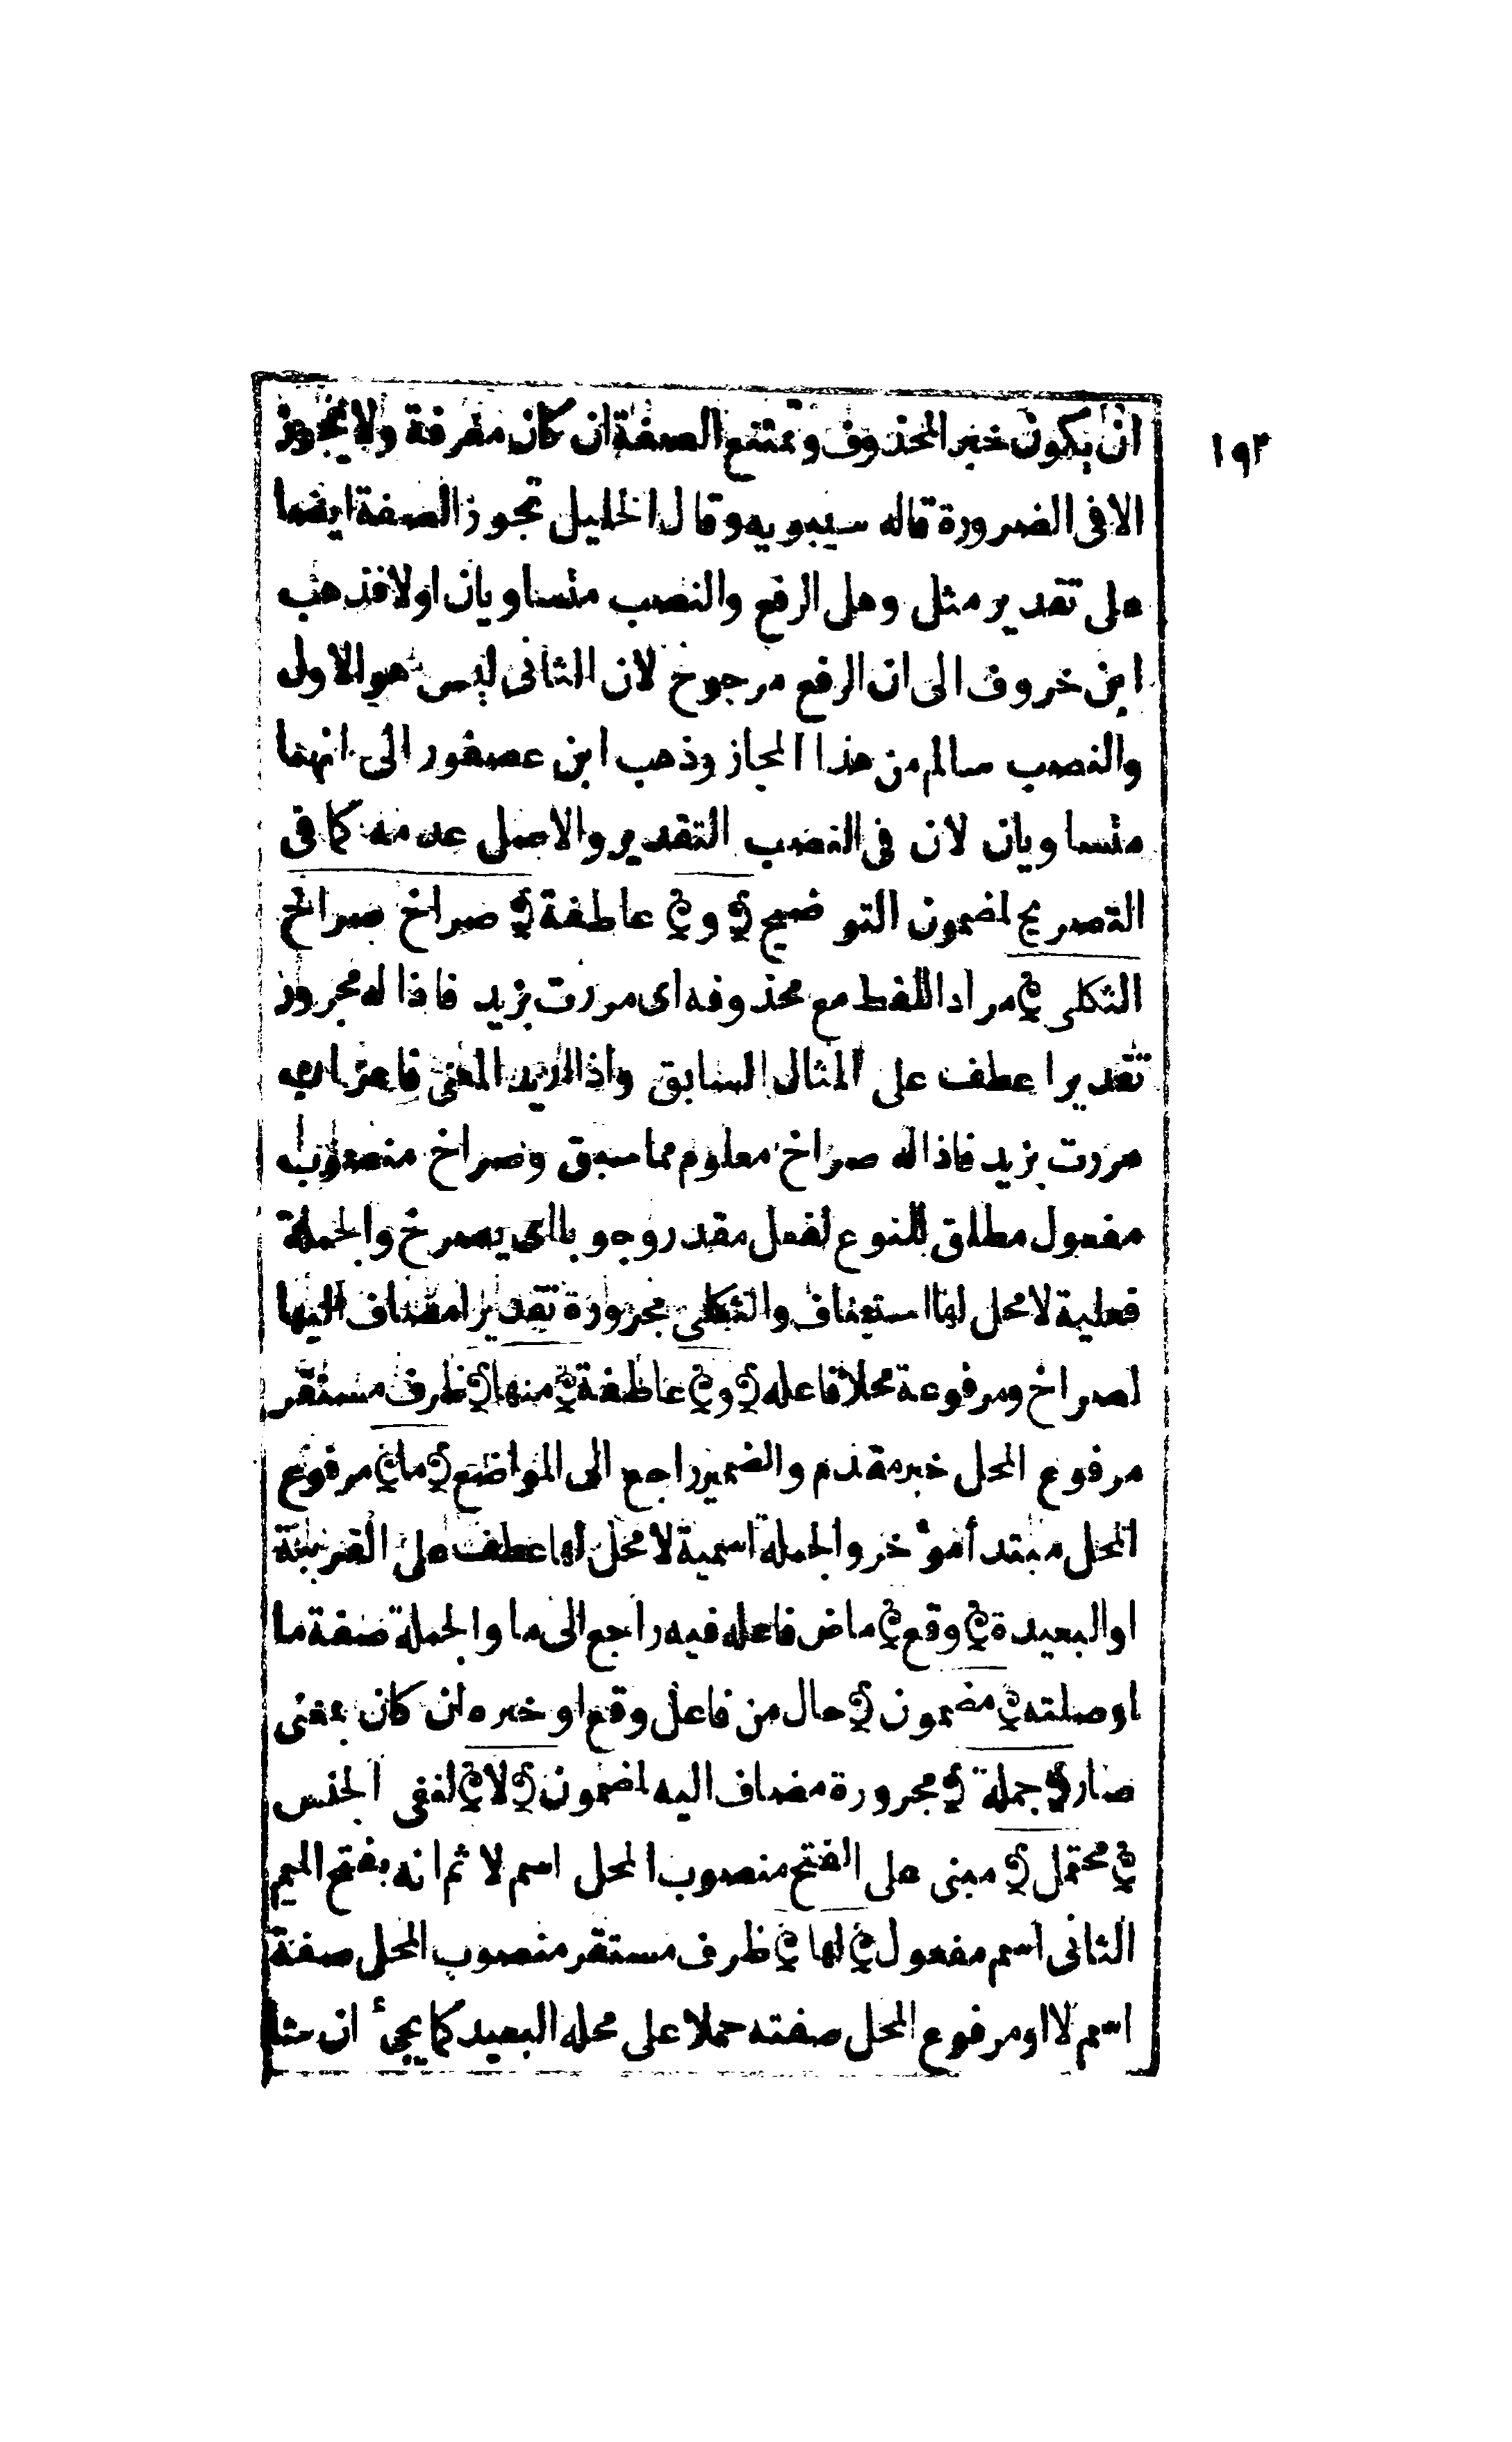 ١٩٣
ان يكون خبر المحذوف وتمتنع الصفة ان كان معرفة ولا يجوز
الا فى الضرورة قاله سيبويه وقال الخليل تجوز الصفة ايضا
على تقدير مثل وهل الرفع والنصب متساويان اولا فذهب
ابن خروف الى ان الرفع مرجوح لان الثانى ليس هو الاول
والنصب سالم من هذا المجاز وذهب ابن عصفور الى انهما
متساويان لان فى النصب التقدير والاصل عدمه كما فى
التصريح لمضمون التوضيح ﴿ و ﴾ عاطفة ﴿ صراخ صراخ
الثكلى ﴾ مراد اللفظ مع محذوفه اى مررت بزيد فاذا له مجرور
تقديرا عطف على المثال السابق واذا اريد المعنى فاعراب
مررت بزيد فاذا له صراخ معلوم مما سبق وصراخ منصوب
مفعول مطلق للنوع لفعل مقدر وجوبا اى يصرخ والجملة
فعلية لا محل لها استيناف والثكلى مجرورة تقديرا مضاف اليها
لصراخ ومرفوعة محلا فاعله ﴿ و ﴾ عاطفة ﴿ منها ﴾ ظرف مستقر
مرفوع المحل خبر مقدم والضمير راجع الى المواضع ﴿ ما ﴾ مرفوع
المحل مبتدأ مؤخر والجملة اسمية لا محل لها عطف على القريبة
او البعيدة ﴿ وقع ﴾ ماض فاعله فيه راجع الى ما والجملة صفة ما
او صلته ﴿ مضمون ﴾ حال من فاعل وقع او خبره ان كان بمعنى
صار ﴿ جملة ﴾ مجرورة مضاف اليه لمضمون ﴿ لا ﴾ لنفى الجنس
﴿ محتمل ﴾ مبنى على الفتح منصوب المحل اسم لا ثم انه بفتح الميم
الثانى اسم مفعول ﴿ لها ﴾ ظرف مستقر منصوب المحل صفة
اسم لا او مرفوع المحل صفته حملا على محله البعيد كما يجئ ان شا